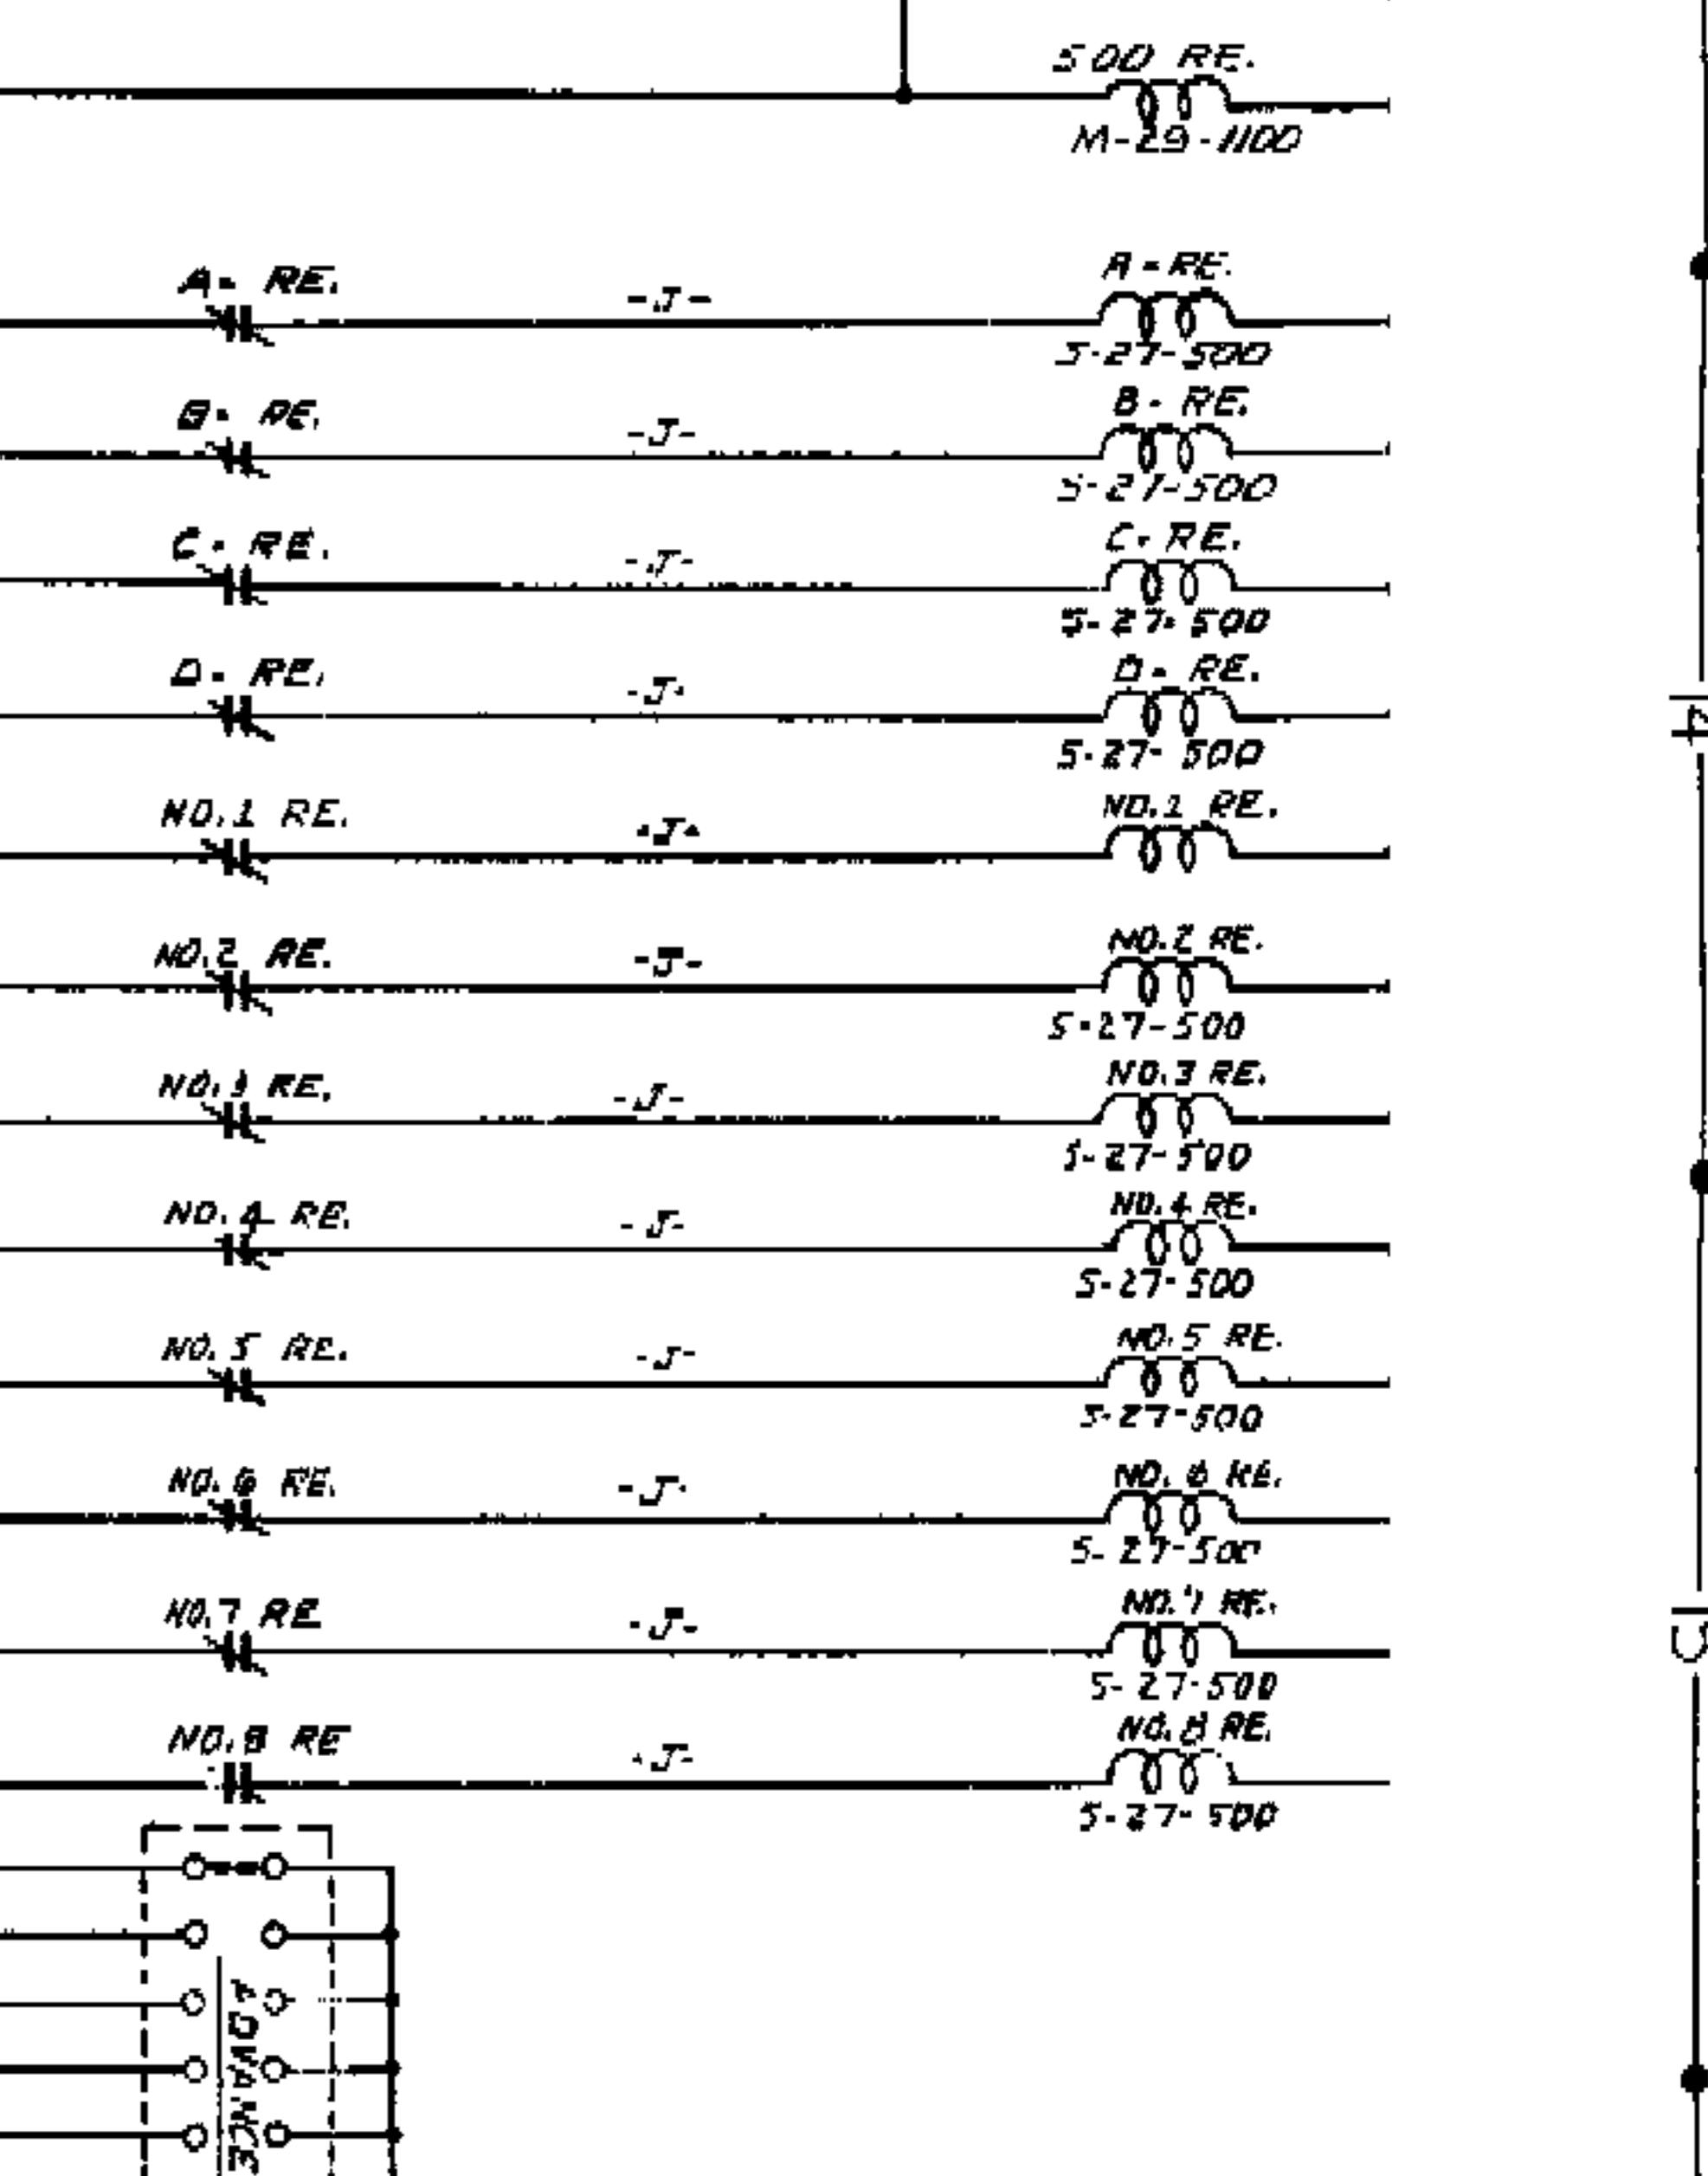 500 RE.
M-29-1100
A- RE. -J- A-RE.
S-27-500
B- RE. -J- B- RE.
S-27-500
C- RE. -J- C- RE.
S-27-500
D- RE. -J- D- RE.
S-27-500
NO.1 RE. -J- NO.1 RE.
NO.2 RE. -J- NO.2 RE.
S-27-500
NO.3 RE. -J- NO.3 RE.
S-27-500
NO.4 RE. -J- NO.4 RE.
S-27-500
NO.5 RE. -J- NO.5 RE.
S-27-500
NO.6 RE. -J- NO.6 RE.
S-27-500
NO.7 RE -J- NO.7 RE.
S-27-500
NO.8 RE -J- NO.8 RE.
S-27-500